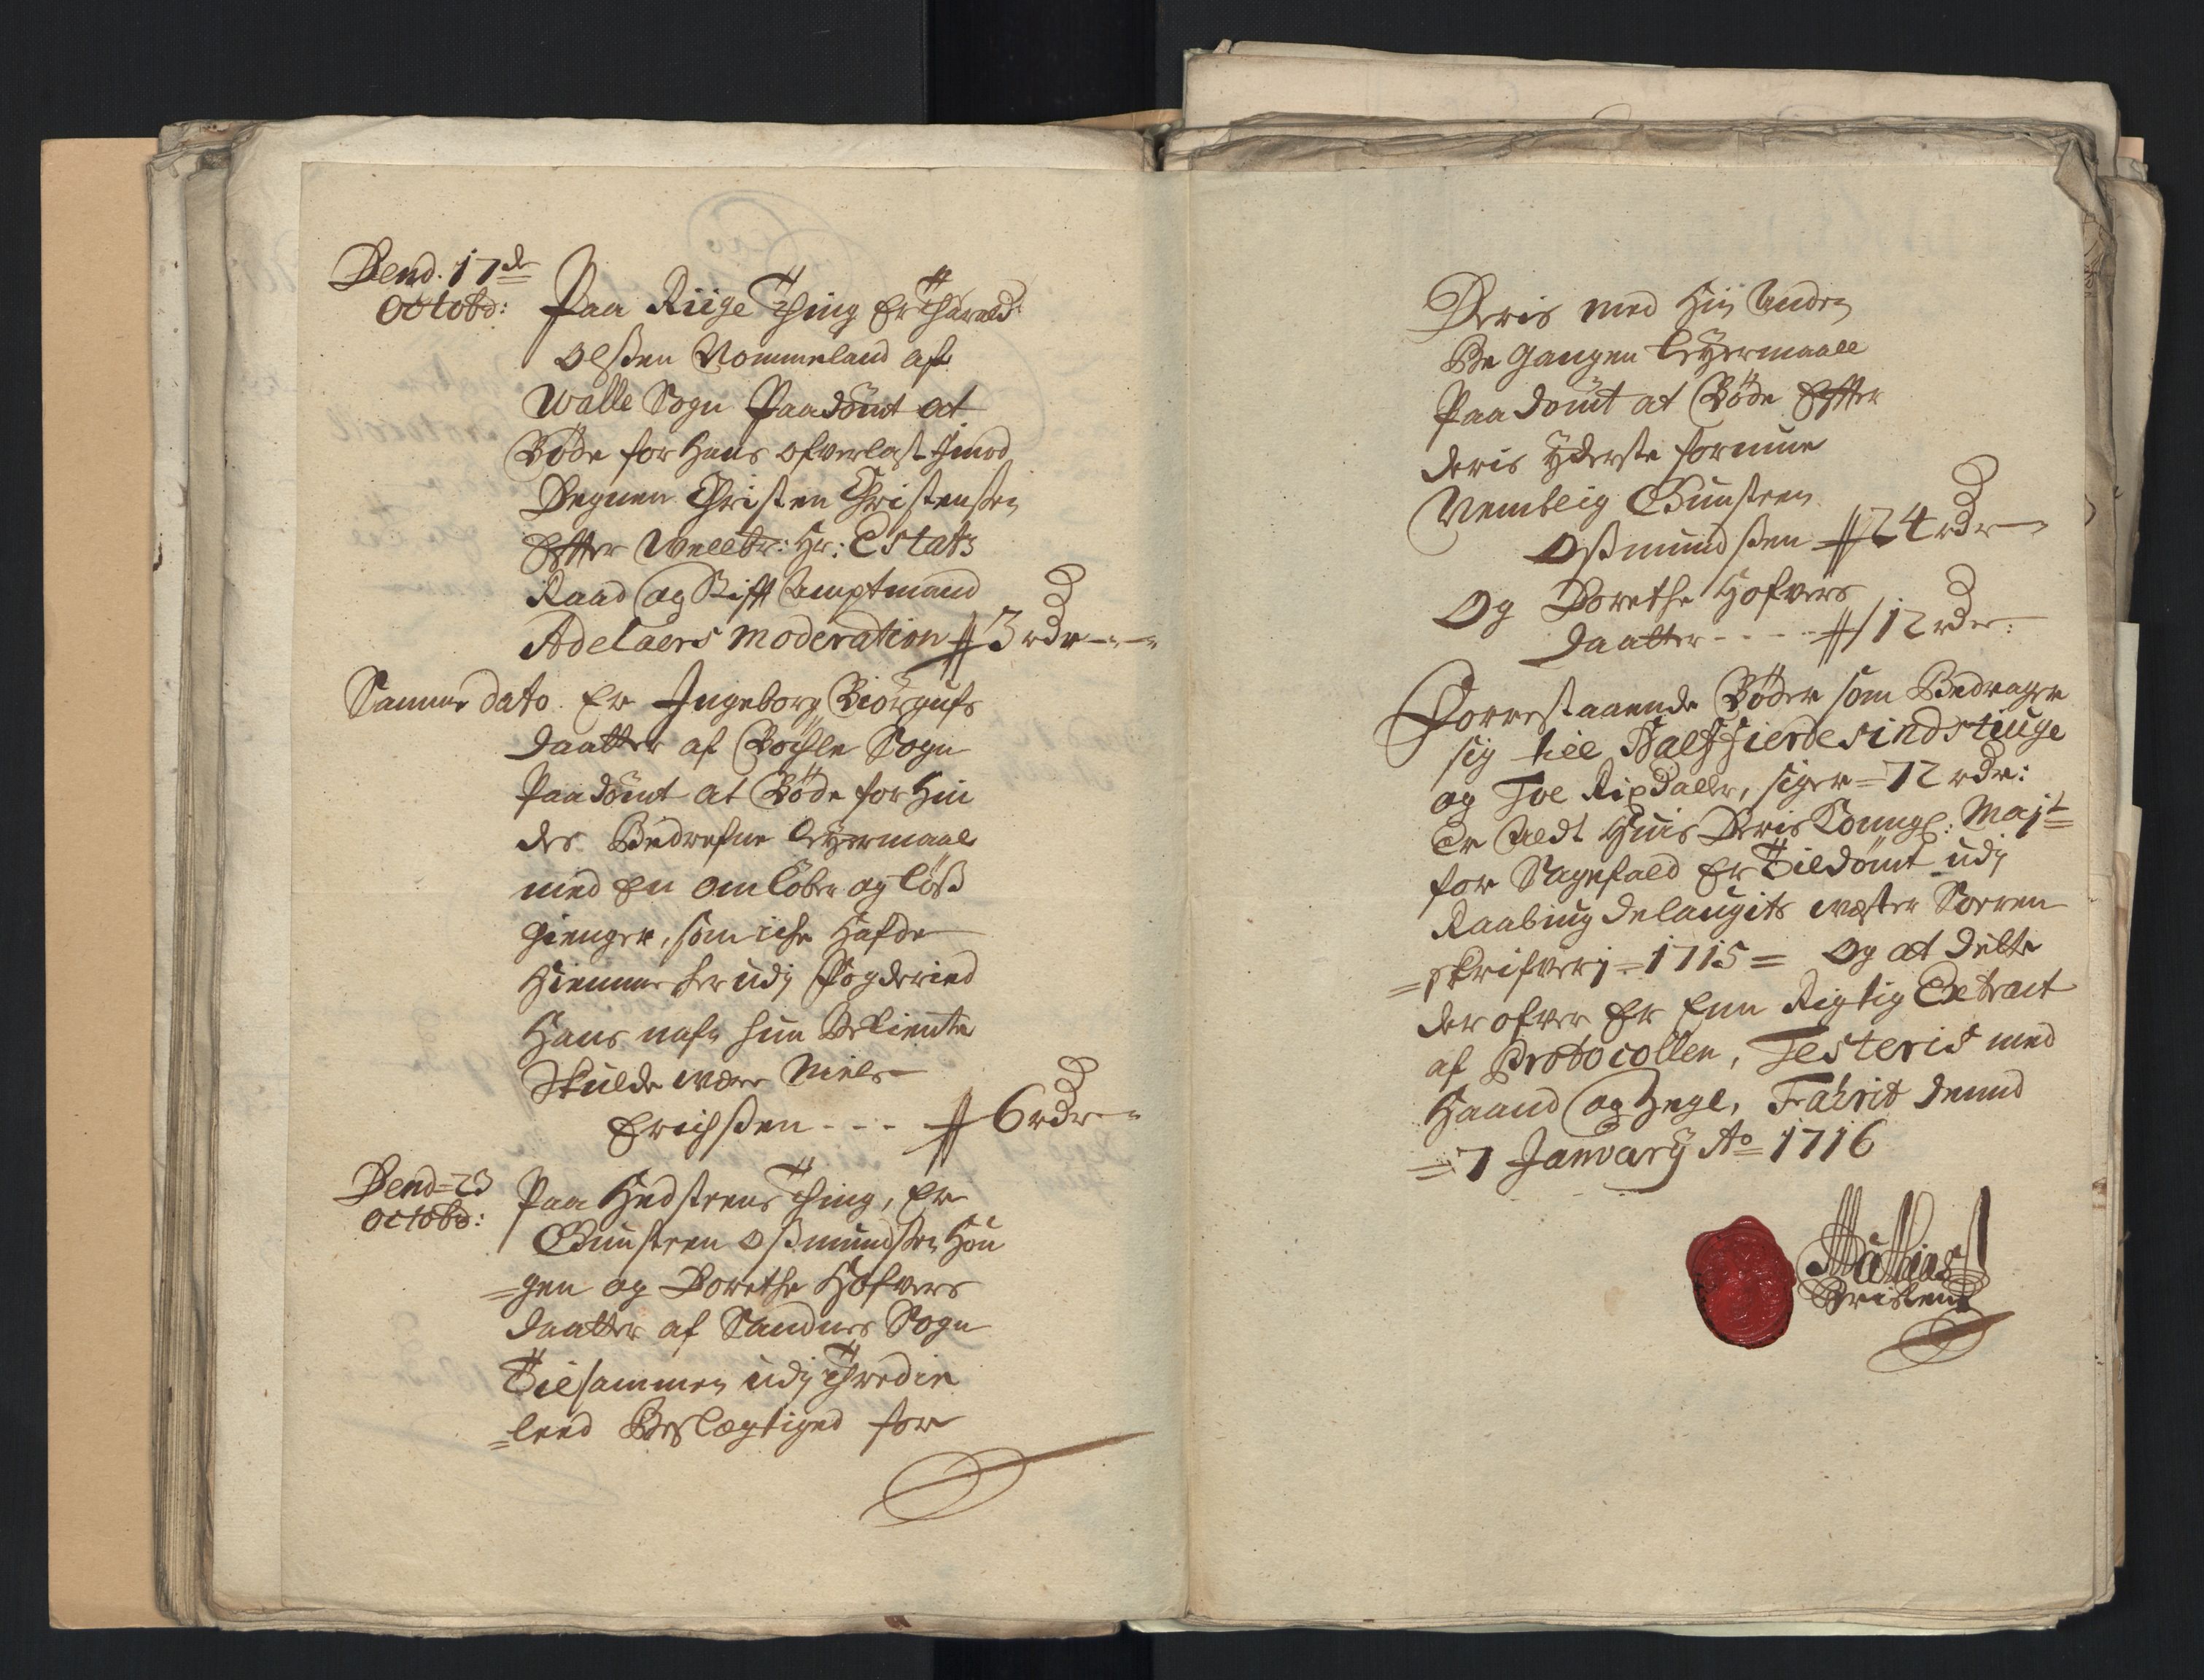 Dend. 17de
Octobr:
Paa Riige Thing Er Tharald
Olßen Nommeland af
Walle Sogn Paadömt at
Böde for Hans ofverlast Jmod
Degnen Christen Christensen
Effter Wellbr: Hr: Estatz
Raad og Stifft Amptmand
Adelaers Moderation # 3 rdr
Samme dato. Er Jngeborg Biörgufs
daatter af Böyle Sogn
Paadömt at Böde for Hin
des Bedrefne leyermaal
med En omlöber og löß
gienger, som iche Hafde
Hiemme her udj Fogderied
Hans nafn hun Bekiente
Skulde være Niels
Erichßen - - - # 6 rdr
Dend = 23
Octobr:
Paa Hedstrens Thing, Er
Gunsteen Oßmundsen Hou
=gen og Dorethe Hofvers
daatter af Sandnes Sogn
Tilsammen udj Thredie
=leed Beslegtiged for
Deris med Hin Anden
Be Gangen leyermaall
Paadömt at Böde Effter
deris yderste formue
Nemblig Gunsteen
Oßmundßen # 24 rdr
Og Dorethe Hofvers
daatter - - - - # 12 rdr:
Forrestaaende Böder som Bedrager
sig till Halffierdesindstiuge
og Toe Rixdaller, siger = 72 rdr:
Er Aldt Huis Deris Kongl: Majt
for Sagefald Er Tildömt udj
Raabingdelaugits wæster Sorren
=skrifverj = 1715 = Og at dette
der ofver Er Enn Rigtig Extract
af Protocollen, Testeris med
Haand og Zegl, Fahrit dennd
= 7 January Ao = 1716
Mathias
Cristens